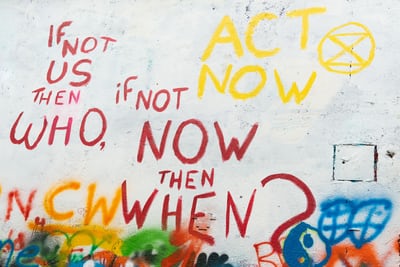 IF
NOT
US
THEN
WHO,
iF NOT
NOW
THEN
WHEN?
ACT
NOW